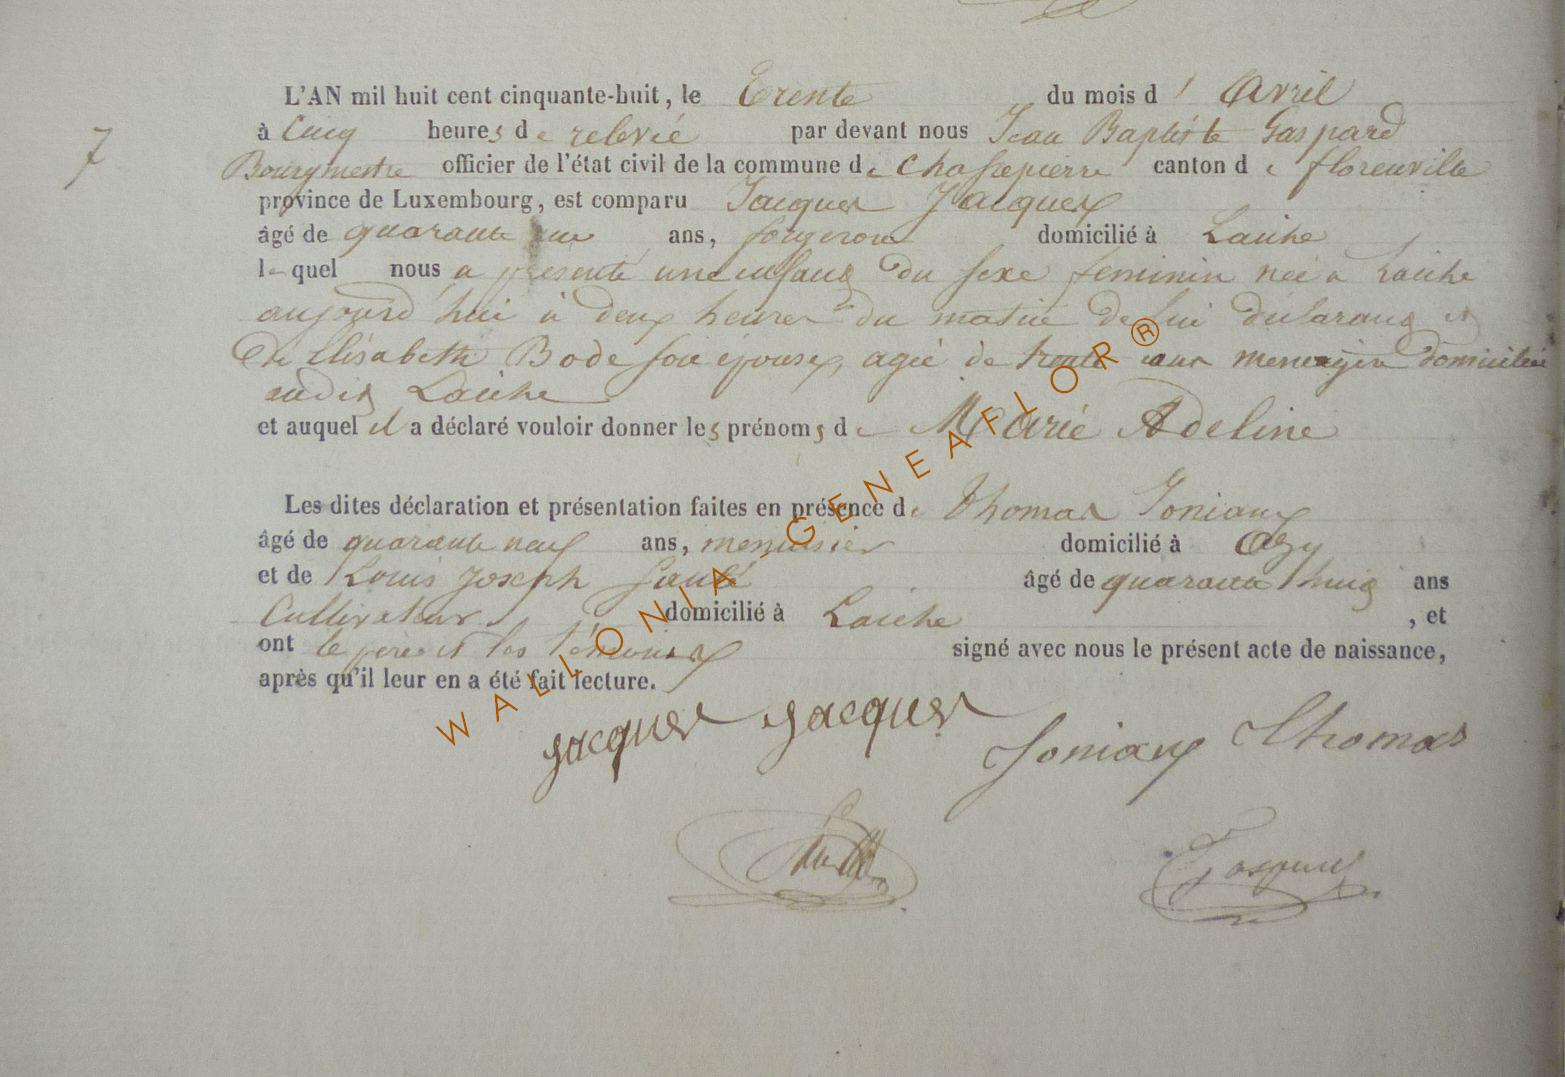 L'AN mil huit cent cinquante-huit, le Trente du mois d' Avril
7
à Cinq heures de relevée par devant nous Jean Baptiste Gaspard
Bourgmestre officier de l'état civil de la commune de Chassepierre canton de florenville
province de Luxembourg, est comparu Jacques Jacques
âgé de quarante ans, forgeron domicilié à Laiche
lequel nous a présenté une enfant du sexe féminin née à Laiche
aujourd'hui à deux heures du matin de lui déclarant et
de Elisabeth Bode son épouse, agée de trente ans menagère domiciliée
audit Laiche
et auquel il a déclaré vouloir donner les prénoms de Marie Adeline
Les dites déclaration et présentation faites en présence de Thomas Joniaux
âgé de quarante neuf ans, menuisier domicilié à Azy
et de Louis Joseph âgé de quarante huit ans
Cultivateur domicilié à Laiche, et
ont le père et les témoins signé avec nous le présent acte de naissance,
après qu'il leur en a été fait lecture.
WALLONIA-GENEAFLOR®
jacques jacques
Joniaux Thomas
Gaspard